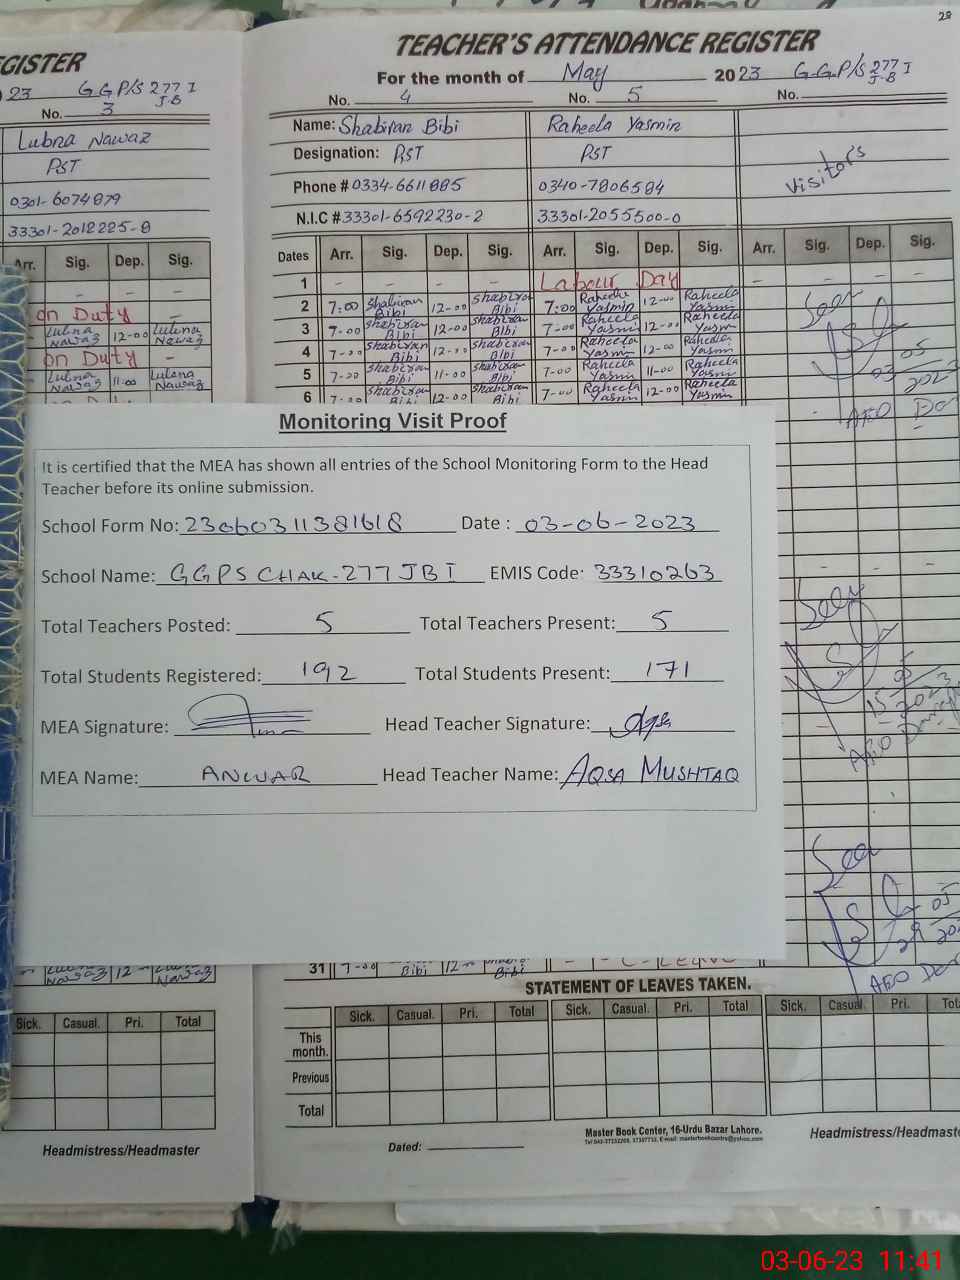 28
GISTER
23 G.G.P/S 277 I
J-B
No. 3
Lubna Nawaz
PST
0301-6074879
33301-2012225-8
Arr. Sig. Dep. Sig.
on Duty
Lubna Nawaz 12-00 Lubna Nawaz
on Duty -
Lubna Nawaz 11-00 Lubna Nawaz
TEACHER'S ATTENDANCE REGISTER
For the month of May 2023 G.G.P/S 277 I
J-B
No. 4 No. 5 No.
Name: Shabiran Bibi Raheela Yasmin
Designation: PST PST Visitors
Phone # 0334-6611885 0340-7806584
N.I.C # 33301-6592230-2 33301-2055500-0
Dates Arr. Sig. Dep. Sig. Arr. Sig. Dep. Sig. Arr. Sig. Dep. Sig.
1 - - - - Labour Day - - -
2 7:00 Shabiran Bibi 12-00 Shabiran Bibi 7:00 Raheela Yasmin 12-00 Raheela Yasmin
3 7-00 Shabiran Bibi 12-00 Shabiran Bibi 7-00 Raheela Yasmin 12-00 Raheela Yasmin
4 7-00 Shabiran Bibi 12-00 Shabiran Bibi 7-00 Raheela Yasmin 12-00 Raheela Yasmin
5 7-00 Shabiran Bibi 11-00 Shabiran Bibi 7-00 Raheela Yasmin 11-00 Raheela Yasmin
6 7-00 Shabiran Bibi 12-00 Shabiran Bibi 7-00 Raheela Yasmin 12-00 Raheela Yasmin
Seen
03 05 2023
AEO
Monitoring Visit Proof
It is certified that the MEA has shown all entries of the School Monitoring Form to the Head
Teacher before its online submission.
School Form No: 23060311381618 Date : 03-06-2023
School Name: GGPS CHAK-277 JB I EMIS Code: 33310263
Total Teachers Posted: 5 Total Teachers Present: 5
Total Students Registered: 192 Total Students Present: 171
MEA Signature: Head Teacher Signature: Aqsa
MEA Name: ANWAR Head Teacher Name: AQSA MUSHTAQ
Seen
15 05 2023
AEO
Seen
29 05
AEO
Nawaz 12 Nawaz
31 7-00 Bibi 12-00 Bibi
STATEMENT OF LEAVES TAKEN.
Sick. Casual. Pri. Total Sick. Casual. Pri. Total Sick. Casual. Pri. Total Sick. Casual. Pri.
This month.
Previous
Total
Headmistress/Headmaster
Dated:
Master Book Center, 16-Urdu Bazar Lahore.
Headmistress/Headmaste
03-06-23 11:41